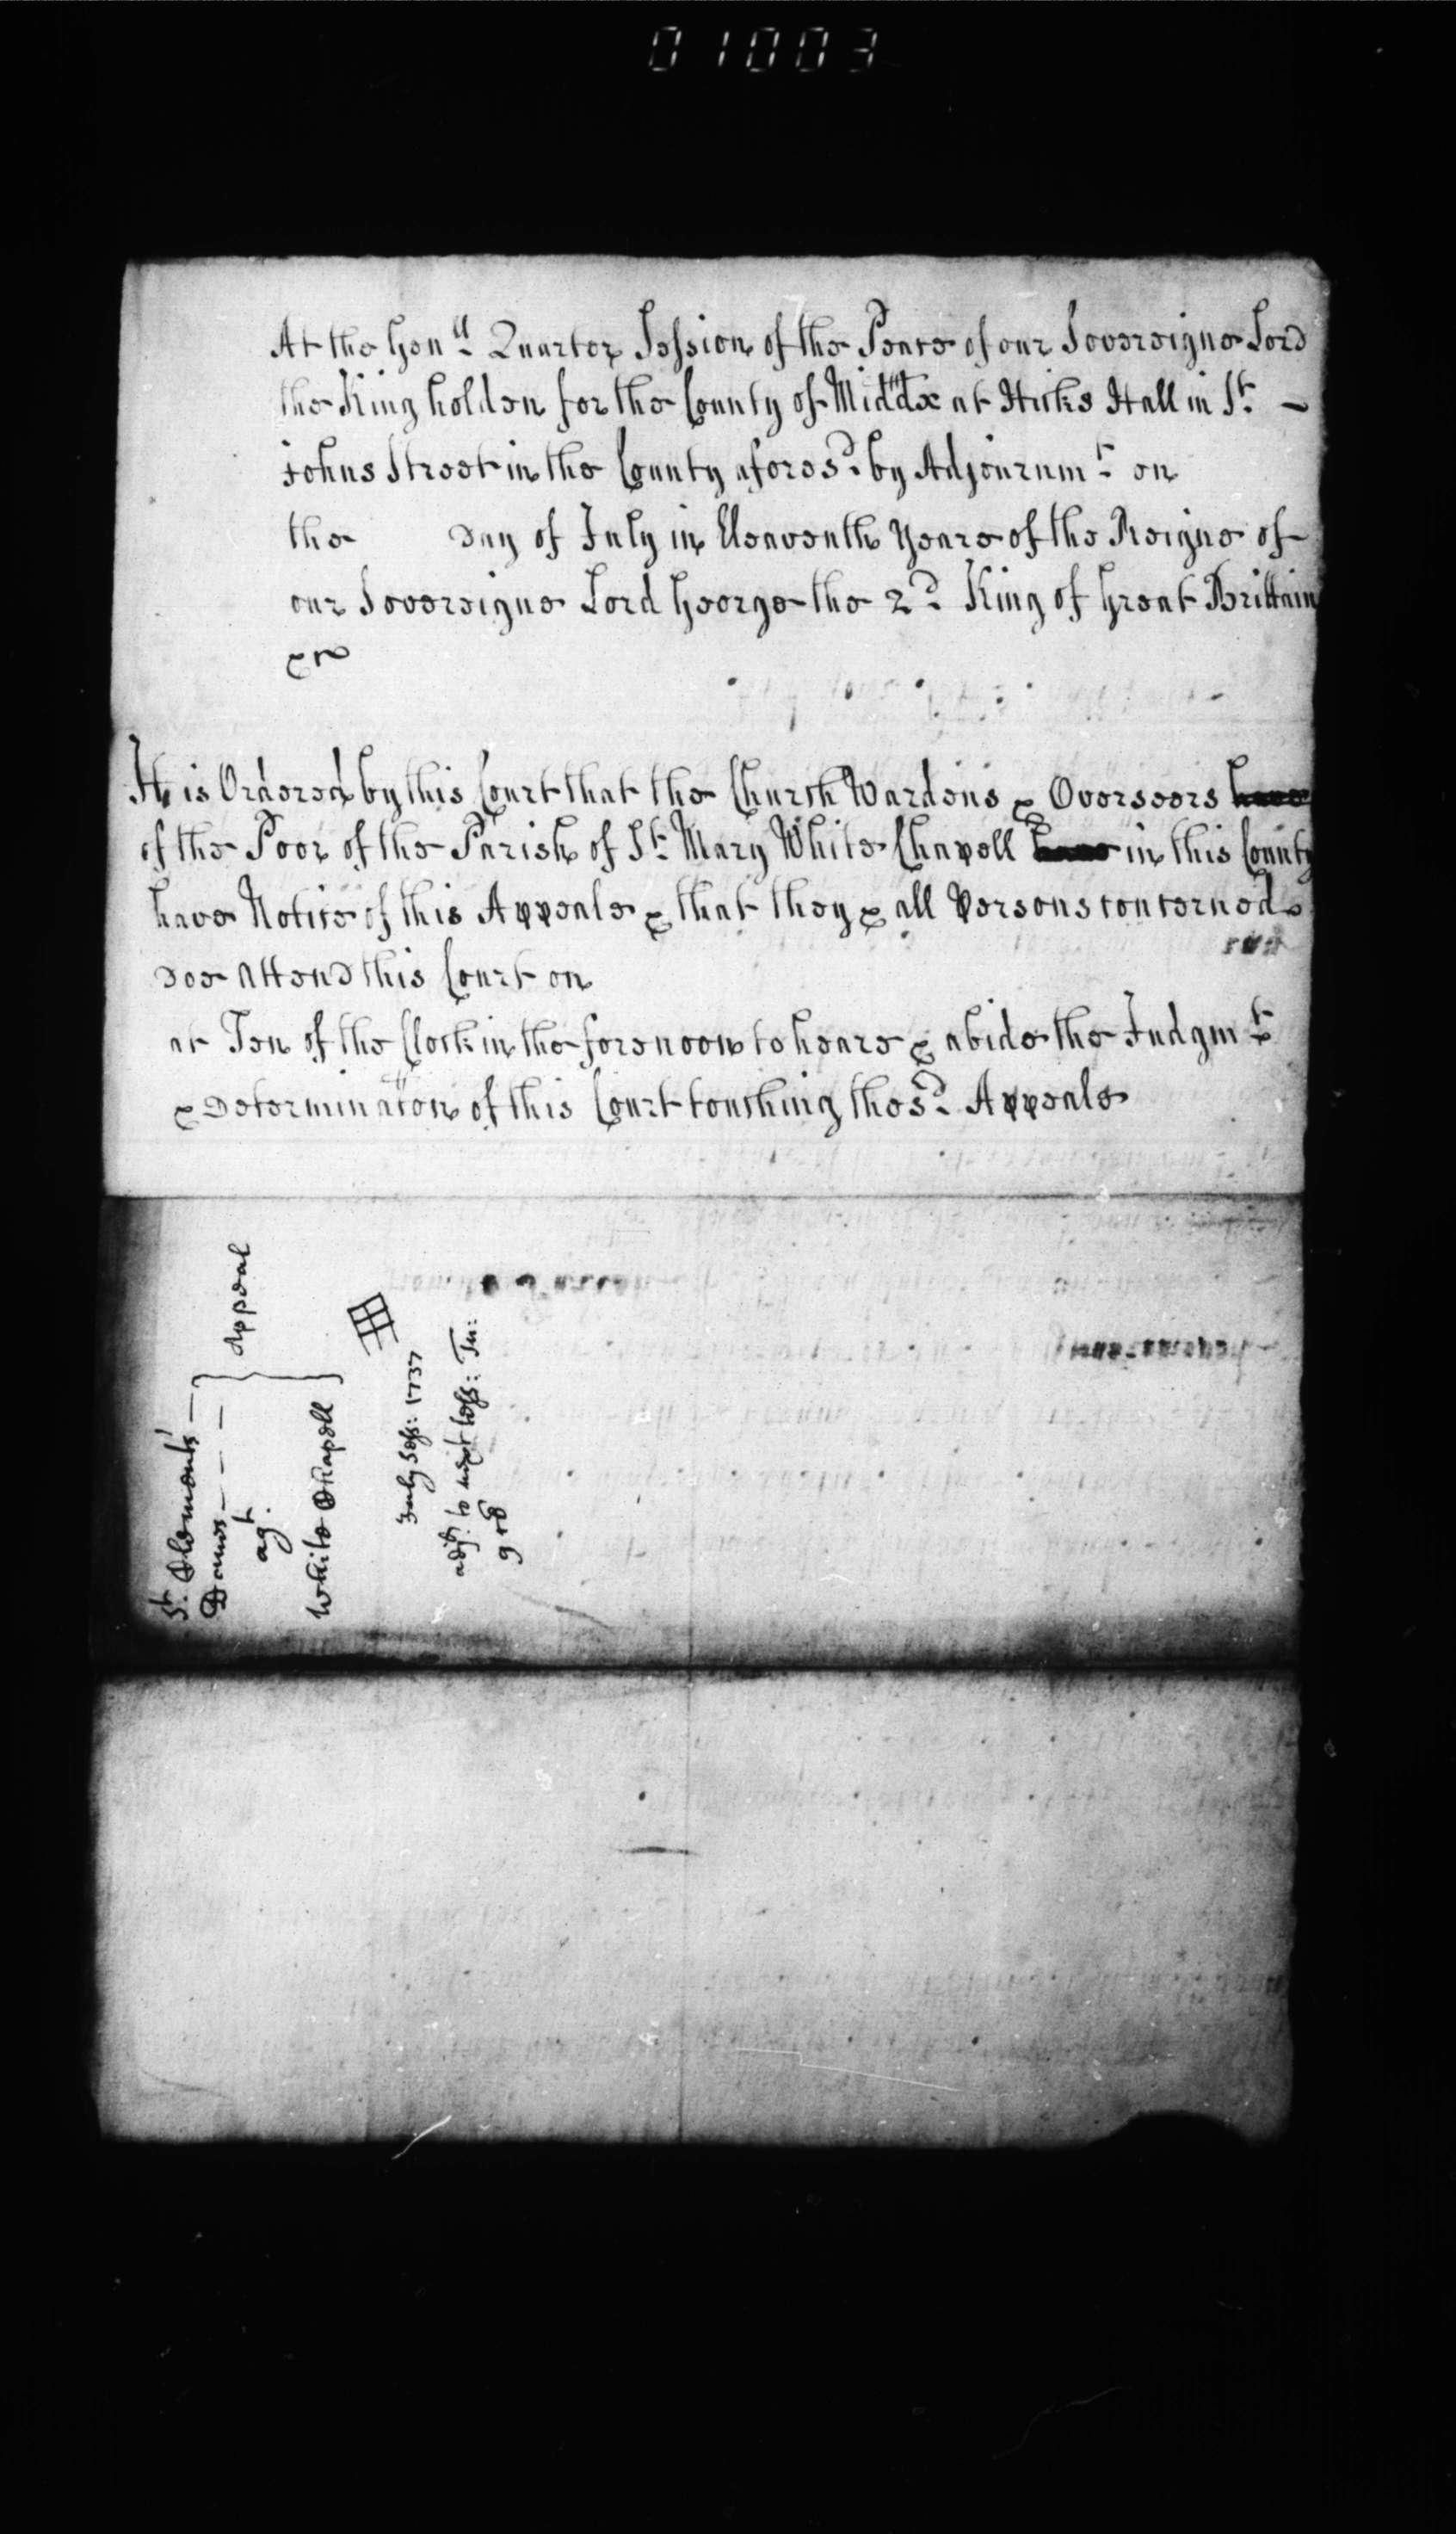 01003
At the Gen.ll Quarter Session of the Peace of our Sovereigne Lord
the King holden for the County of Midd'x at Hicks Hall in St. -
Johns Street in the County afores.d by Adjournm.t on
the day of July in Eleaventh Yeare of the Reigne of
our Sovereigne Lord George the 2.d King of Great Brittain
&c
It is Ordered by this Court that the Church Wardens & Overseers have
of the Poor of the Parish of St. Mary White Chapell have in this County
have Notice of this Appeale & that they & all Persons concerned
doe Attend this Court on
at Ten of the Clock in the forenoon to heare & abide the Judgm.t
& Determinacon of this Court touching the s.d Appeale
St. Clements
Danes
agt.
White Chapell
Appeal
July Sess: 1737
adj.d to next Sess: